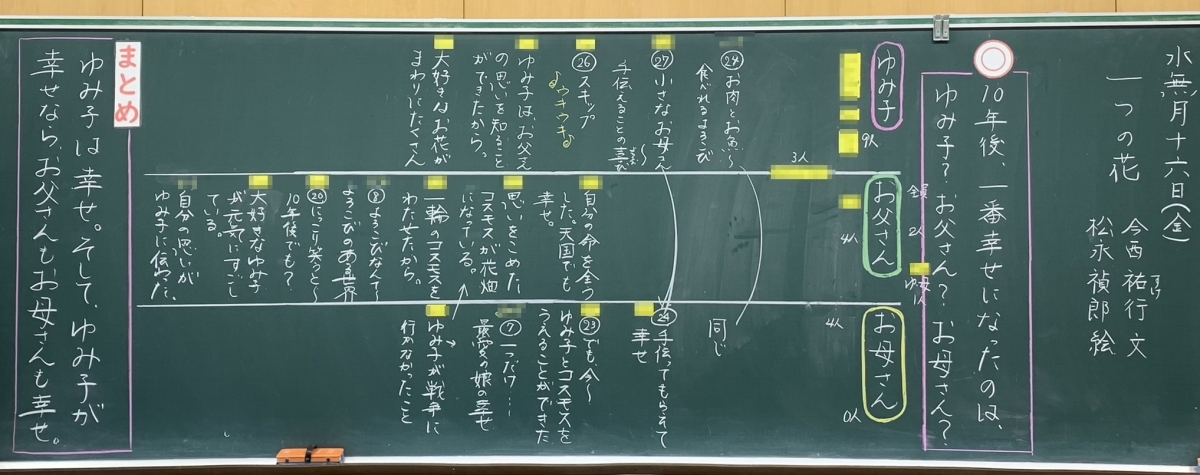 水無月十六日(金)
一つの花
今西祐行 文
すけ
松永禎郎 絵
10年後、一番幸せになったのは、
ゆみ子?お父さん?お母さん?
ゆみ子
9人
3人
お父さん
全員
2人
4人
お母さん
4人
0人
㉔お肉とお魚〜
食べれるよろこび
㉗小さなお母さん〜
手伝えることの喜び
㉖スキップ
♪ウキウキ♪
ゆみ子は、お父さん
の思いを知ること
ができたから。
大好きなお花が
まわりにたくさん
自分の命を全う
した。天国でも
幸せ。
思いをこめた
コスモスが花畑
になっている。
一輪のコスモスを
わたせたから。
⑧よろこびなんて〜
よろこびのある世界
⑳にっこり笑うと〜
10年後でも?
大好きなゆみ子
が元気にすごし
ている。
自分の思いが
ゆみ子に伝わった。
同じ
㉔手伝ってもらえて
幸せ
㉓でも今〜
ゆみ子とコスモスを
うえることができた
⑦一つだけ…
最愛の娘の幸せ
ゆみ子が戦争に
行かなかったこと
まとめ
ゆみ子は幸せ。そして、ゆみ子が
幸せなら、お父さんもお母さんも幸せ。